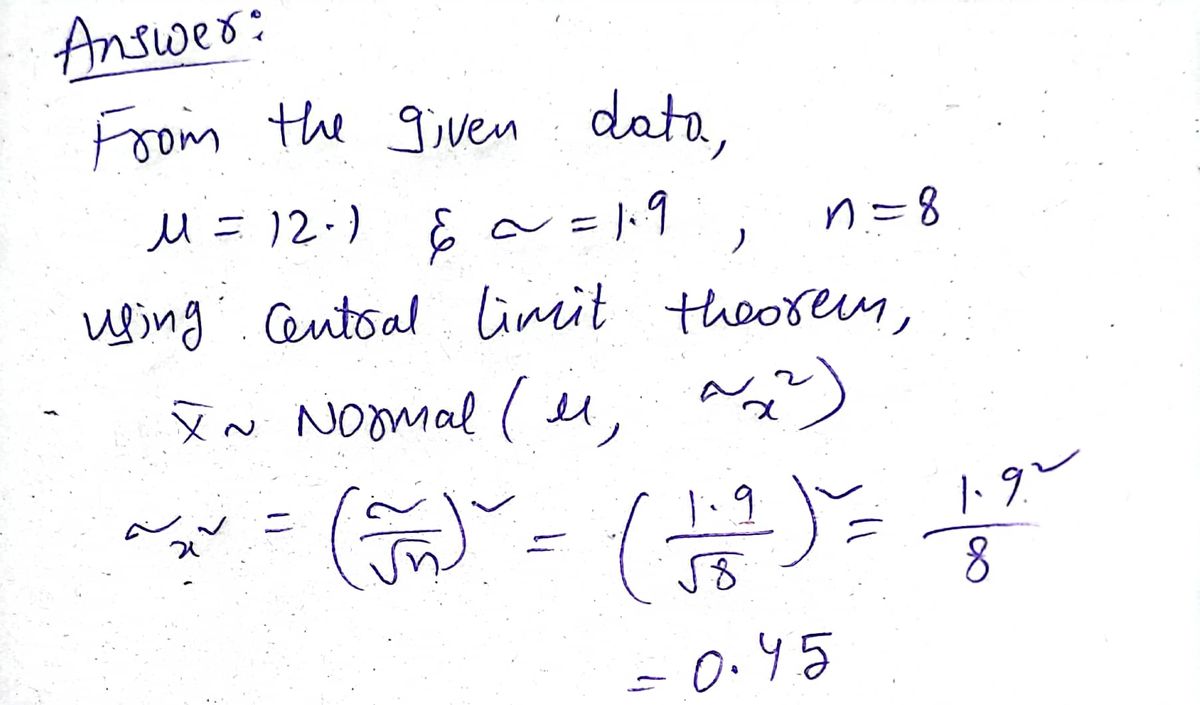 Answer:
From the given data,
μ = 12.1 & σ = 1.9 , n = 8
using Central limit theorem,
x̄ ~ Normal ( μ, σx²)
σx² = (σ/√n)² = (1.9/√8)² = 1.9²/8
= 0.45